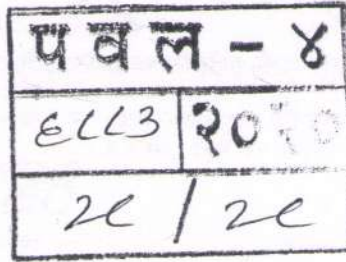 पवल - ४
६८८३ २०१०
२८ / २८